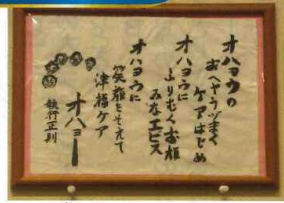 オハヨウの
おへやうづまく
ケアはじめ
オハヨウに
ふりむくお顔
みなエビス
オハヨウに
笑顔をそえて
津福ケア
オハヨー
鉄行正則